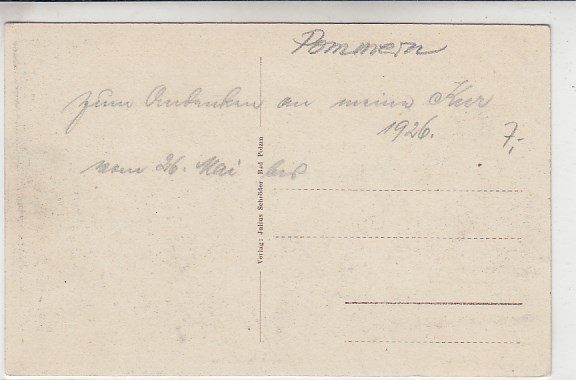 Pommern
zum Andenken an meine Kur
1926.
7,-
vom 26. Mai bis
Verlag: Julius Schröder, Bad Polzin